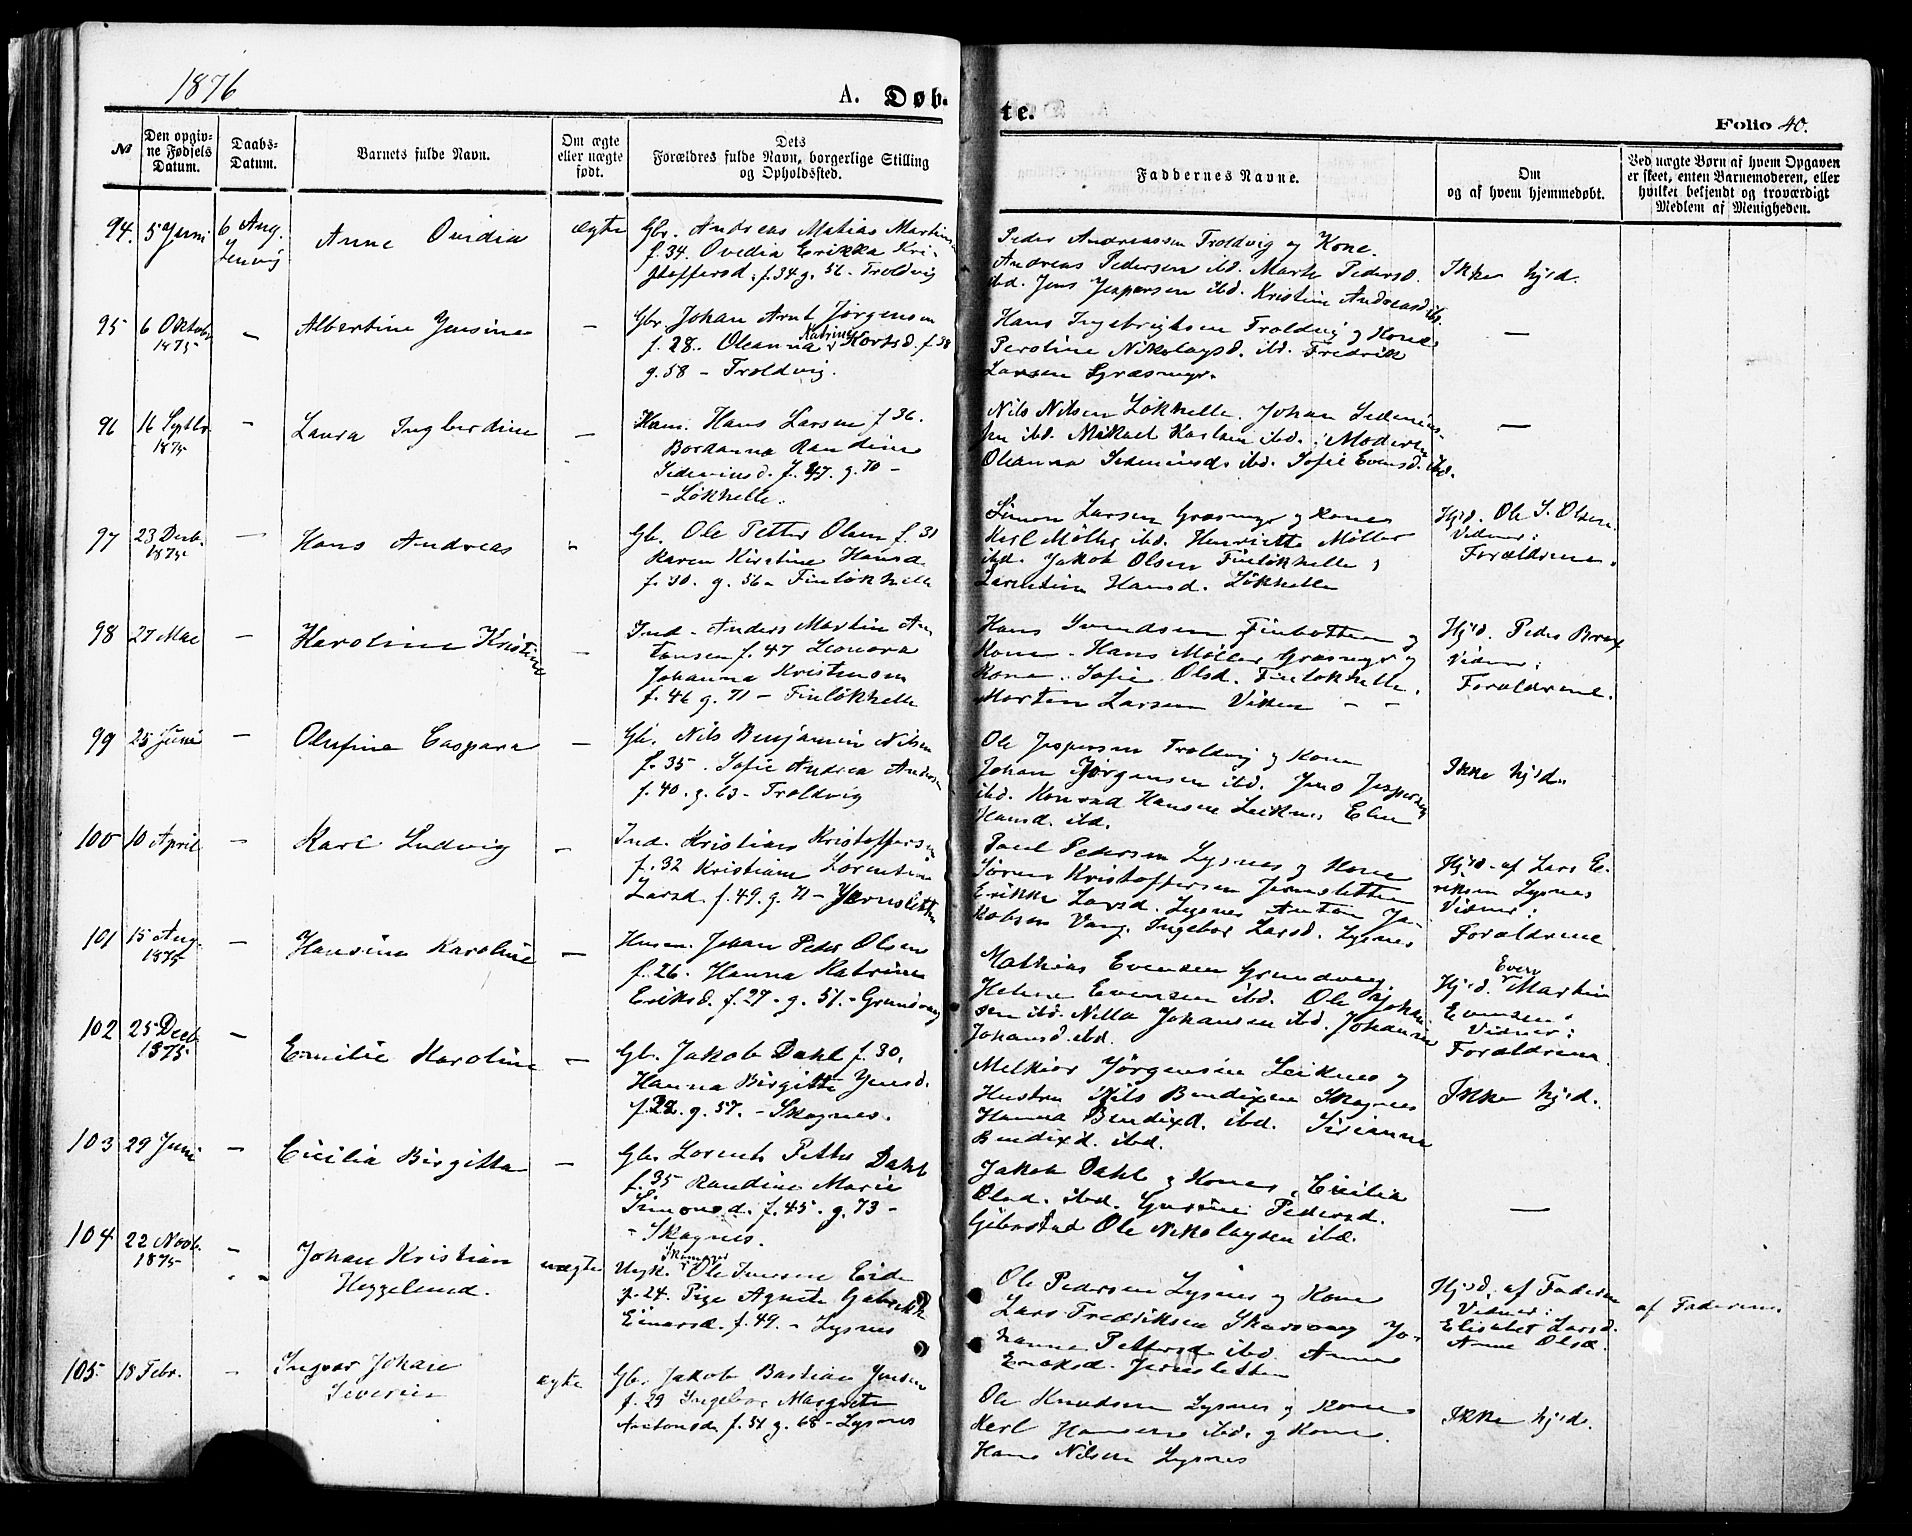 1876
A. Døb-
te.
Folio 40.
No
Den opgiv-
ne Fødsels
Datum.
Daabs-
Datum.
Barnets fulde Navn.
Om ægte
eller uægte
født.
Dets
Forældres fulde Navn, borgerlige Stilling
og Opholdssted.
Faddernes Navne.
Om
og af hvem hjemmedøbt.
Ved uægte Børn af hvem Opgaven
er skeet, enten Barnemoderen, eller
hvilket bekjendt og troværdigt
Medlem af Menigheden.
94. 5 Juni 6 Aug.
Lenvig
Anne Ovidia
ægte
Gbr. Andreas Matias Martins
f. 34. Ovedia Erikka Kri-
stoffersd. f. 34 g. 56 - Troldvig
Peder Andreassen Troldvig og Kone.
Andreas Pedersen ibd. Marth Pedersd.
ibd. Jens Jespersen ibd. Kristine Andreasd. ibd.
Ikke hjd.
95 6 Oktob. 1875 -
Albertine Jensine
-
Gbr. Johan Arnt Jørgensen
f. 28. Oleanna Katrine Kortsd. f. 38
g. 58 - Troldvig.
Hans Ingebrigtsen Troldvig og Kone
Peroline Nikolaysd. ibd. Fredrik
Larsen Græsmyr.
-
96 16 Septbr. 1875 -
Laura Ingberdine
-
Husm. Hans Larsen f 36.
Bordanna Randine
Sedeniusd. f. 47. g. 70 -
- Løkhelle.
Nils Nilsen Løkhelle. Johan Sedenius-
sen ibd. Mikael Karlsen ibd. Moderen
Oleanna Sedeniusd. ibd. Sofie Evensd. ibd.
-
97 23 Decb. 1875 -
Hans Andreas
"
Gb. Ole Petter Olsen f. 31
Karen Kirstine Hansd
f. 30. g. 56 - Finløkhelle
Simon Larsen Græsmyr og Kone
Karl Møller ibd. Henriette Møller
ibd. Jakob Olsen Finløkhelle,
Larentine Hansd. Løkhelle
Hjd. Ole S. Olsen.
Vidner:
Forældrene.
98 27 Mai -
Karoline Kristine
-
Ind. Anders Martin An
tonsen f. 47 Leonora
Johanna Kristensen
f. 46 g. 71 - Finløkhelle
Hans Svendsen Finbotten og
Kone. Hans Møller Græsmyr og
Kone. Sofie Olsd. Finløkhelle.
Morten Larsen Viken - -
Hjd. Peder Brox
Vidner:
Forældrene.
99 25 Juni -
Olufine Caspara
-
Gb. Nils Benjamin Nilsen
f. 35. Sofie Andrea Anders
f. 40. g. 63 - Troldvig
Ole Jespersen Troldvig og Kone
Johan Jørgensen ibd. Jens Jespersen
ibd. Konrad Hansen Leiknes Elen
Hansd. ibd.
Ikke hjd.
100 10 April -
Karl Ludvig
-
Ind. Kristian Kristoffersen
f. 32 Kristiane Lorentine
Larsd. f. 49. g. 71 - Jernsletten
Paul Pedersen Lysnes og Kone
Søren Kristoffersen Jernsletten
Erikke Larsd. Lysnes Anton Ja-
kobsen Vang. Ingebor Larsd. Lysnes
Hjd. af Lars E-
riksen Lysnes
Vidner:
Forældrene
101 15 Aug. 1875 -
Hansine Karoline
-
Husm. Johan Peder Olsen
f. 26. Hanna Katrine
Eriksd. f. 27 - g. 51. - Grundvang
Mathias Evensen Grundvang.
Helene Evensen ibd. Ole Johan
sen ibd. Nilla Johansen ibd. Johanne
Johansd. ibd.
Hjd. Even Martin
Evensen.
Vidner:
Forældrene
102 25 Decb 1875 -
Emilie Karoline
-
Gb. Jakob Dahl f. 30,
Hanna Birgitte Jensd.
f. 32. g. 57. - Skognes.
Melkior Jørgensen Leiknes og
Hustru Nils Bendixen Skognes
Hanna Bendixd. ibd. Sirianna
Bendixd. ibd.
Ikke hjd.
103 29 Juni -
Cicilia Birgitta
-
Gb. Lorents Petter Dahl
f. 35 Randine Marie
Simonsd. f. 45. g. 73 -
- Skognes.
Jakob Dahl og Kone, Cicilia
Olsd. ibd. Gurine Pedersd.
Gibostad Ole Nikolaysen ibd.
-
104 22 Novb. 1875 - " -
Johan Kristian
Heggelund.
uægte
Ungk. Skomager Ole Iversen Eide
f. 24. Pige Agnete Gabrikke
Einarsd. f. 49. - Lysnes
Ole Pedersen Lysnes og Kone
Lars Fredriksen Skarsvaag Jo-
hanna Pettersd. ibd. Anne
Eriksd. Jernsletten
Hjd. af Faderen
Vidner:
Elisabet Larsd.
Anne Olsd.
af Faderen
105. 18 Febr. -
Ingvar Johan
Severin
ægte
Gb. Jakob Bastian Jensen
f. 29 Ingebor Margrete
Antonsd. f. 31 g. 68 - Lysnes
Ole Knudsen Lysnes og Kone
Karl Hansen ibd. og Kone.
Hans Nilsen Lysnes
Ikke hjd.